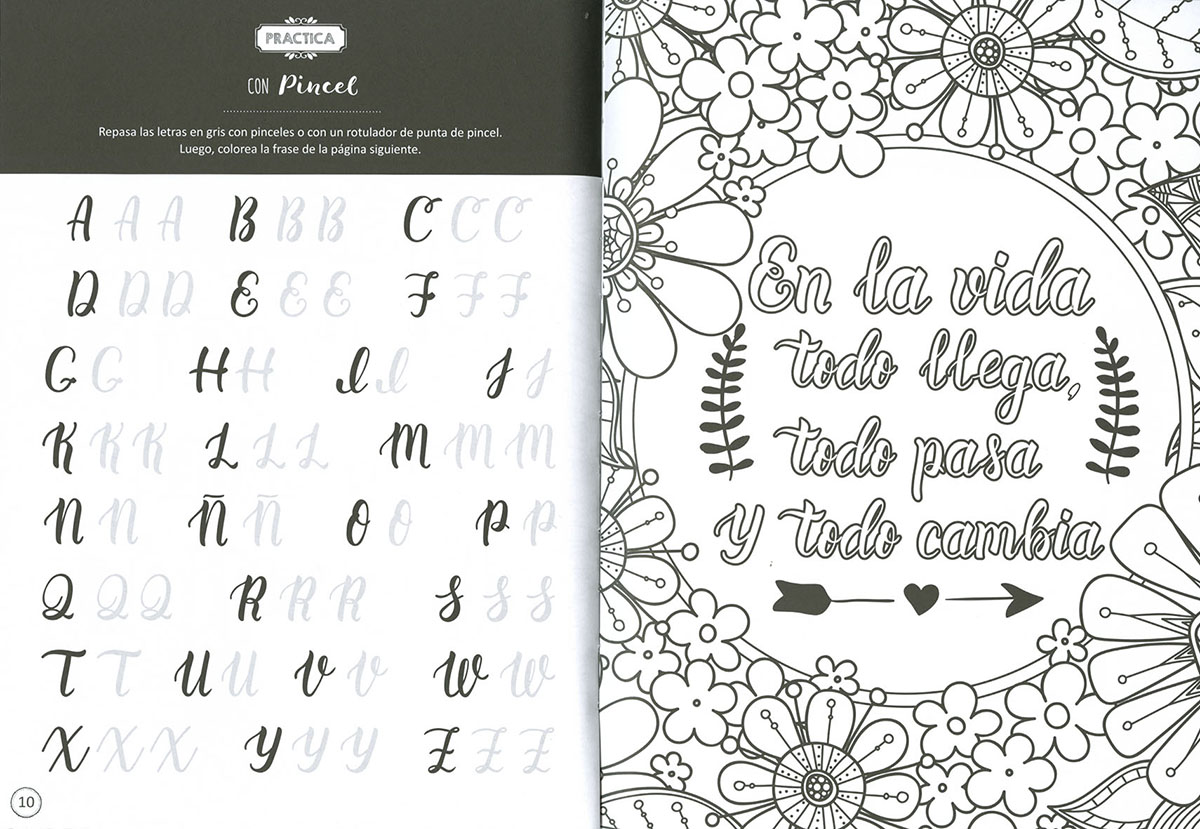 PRACTICA
CON Pincel
Repasa las letras en gris con pinceles o con un rotulador de punta de pincel.
Luego, colorea la frase de la página siguiente.
A A A B B B C C C
D D D E E E F F F
G G H H I I J J
K K K L L L M M M
N N Ñ Ñ O O P P
Q Q Q R R R S S S
T T U U V V W W
X X X Y Y Y Z Z Z
10
En la vida
todo llega,
todo pasa
y todo cambia